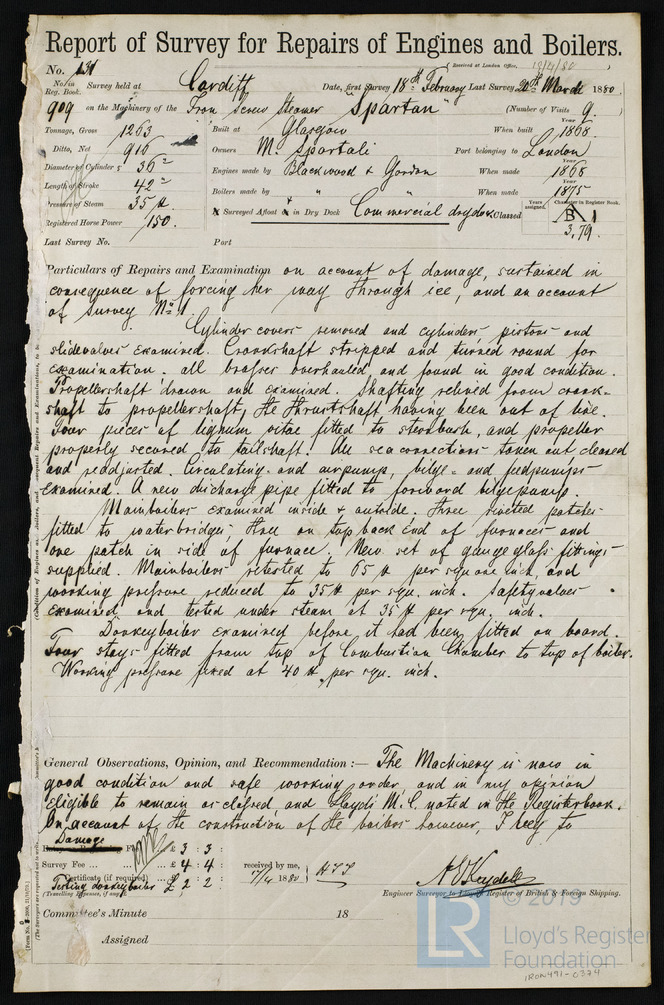 Report of Survey for Repairs of Engines and Boilers.
No. 131 Received at London Office, 13/4/80
No. in Reg. Book. Survey held at Cardiff Date, first Survey 18th February Last Survey 20th March 1880
909 on the Machinery of the Iron Screw Steamer "Spartan" (Number of Visits 9
Tonnage, Gross 1263 Built at Glasgow When built Year 1868
Ditto, Net 916 Owners M. Spartali Port belonging to London
Diameter of Cylinders 36" Engines made by Blackwood & Gordon When made Year 1868
Length of Stroke 42" Boilers made by " " When made Year 1875
Pressure of Steam 35 lb. Surveyed Afloat or in Dry Dock Commercial drydock Classed Years assigned. Character in Register Book. 3,79.
Registered Horse Power 150.
Last Survey No. Port
Particulars of Repairs and Examination on account of damage, sustained in
consequence of forcing her way through ice, and on account
of Survey No. 1.
Cylinder covers removed and cylinders, pistons and
slidevalves examined. Crankshaft stripped and turned round for
examination. all brasses overhauled, and found in good condition.
Propellershaft drawn and examined. Shafting relined from crank-
shaft to propellershaft, the thrustshaft having been out of line.
Four pieces of lignum vitae fitted to sternbush, and propeller
properly secured to tailshaft. All seaconnections taken out cleaned
and readjusted. Circulating- and airpump, bilge- and feedpumps
examined. A new discharge pipe fitted to forward bilgepump.
Mainboilers examined inside & outside. Three riveted patches
fitted to waterbridges, three on top back end of furnaces and
one patch in side of furnace. New set of gaugeglass fittings
supplied. Mainboilers retested to 65 lb per square inch, and
working pressure reduced to 35 lb per squ. inch. Safetyvalves
examined and tested under steam at 35 lb per squ. inch.
Donkeyboiler examined before it had been fitted on board.
Four stays fitted from top of Combustion Chamber to top of boiler.
Working pressure fixed at 40 lb per squ. inch.
General Observations, Opinion, and Recommendation:— The Machinery is now in
good condition and safe working order, and in my opinion
eligible to remain as classed and Lloyds M.C. noted in the Registerbook.
On account of the construction of the boilers however, I beg to
Damage
£ 3 : 3 :
Survey Fee ... £ 4 : 4 received by me,
Certificate (if required) 7/4 1880
Testing donkeyboiler £ 2 : 2 :
(Travelling Expenses, if any)
Engineer Surveyor to Lloyd's Register of British & Foreign Shipping.
Committee's Minute 18
Assigned
LR © 2019
Lloyd's Register
Foundation
IRON491-0374